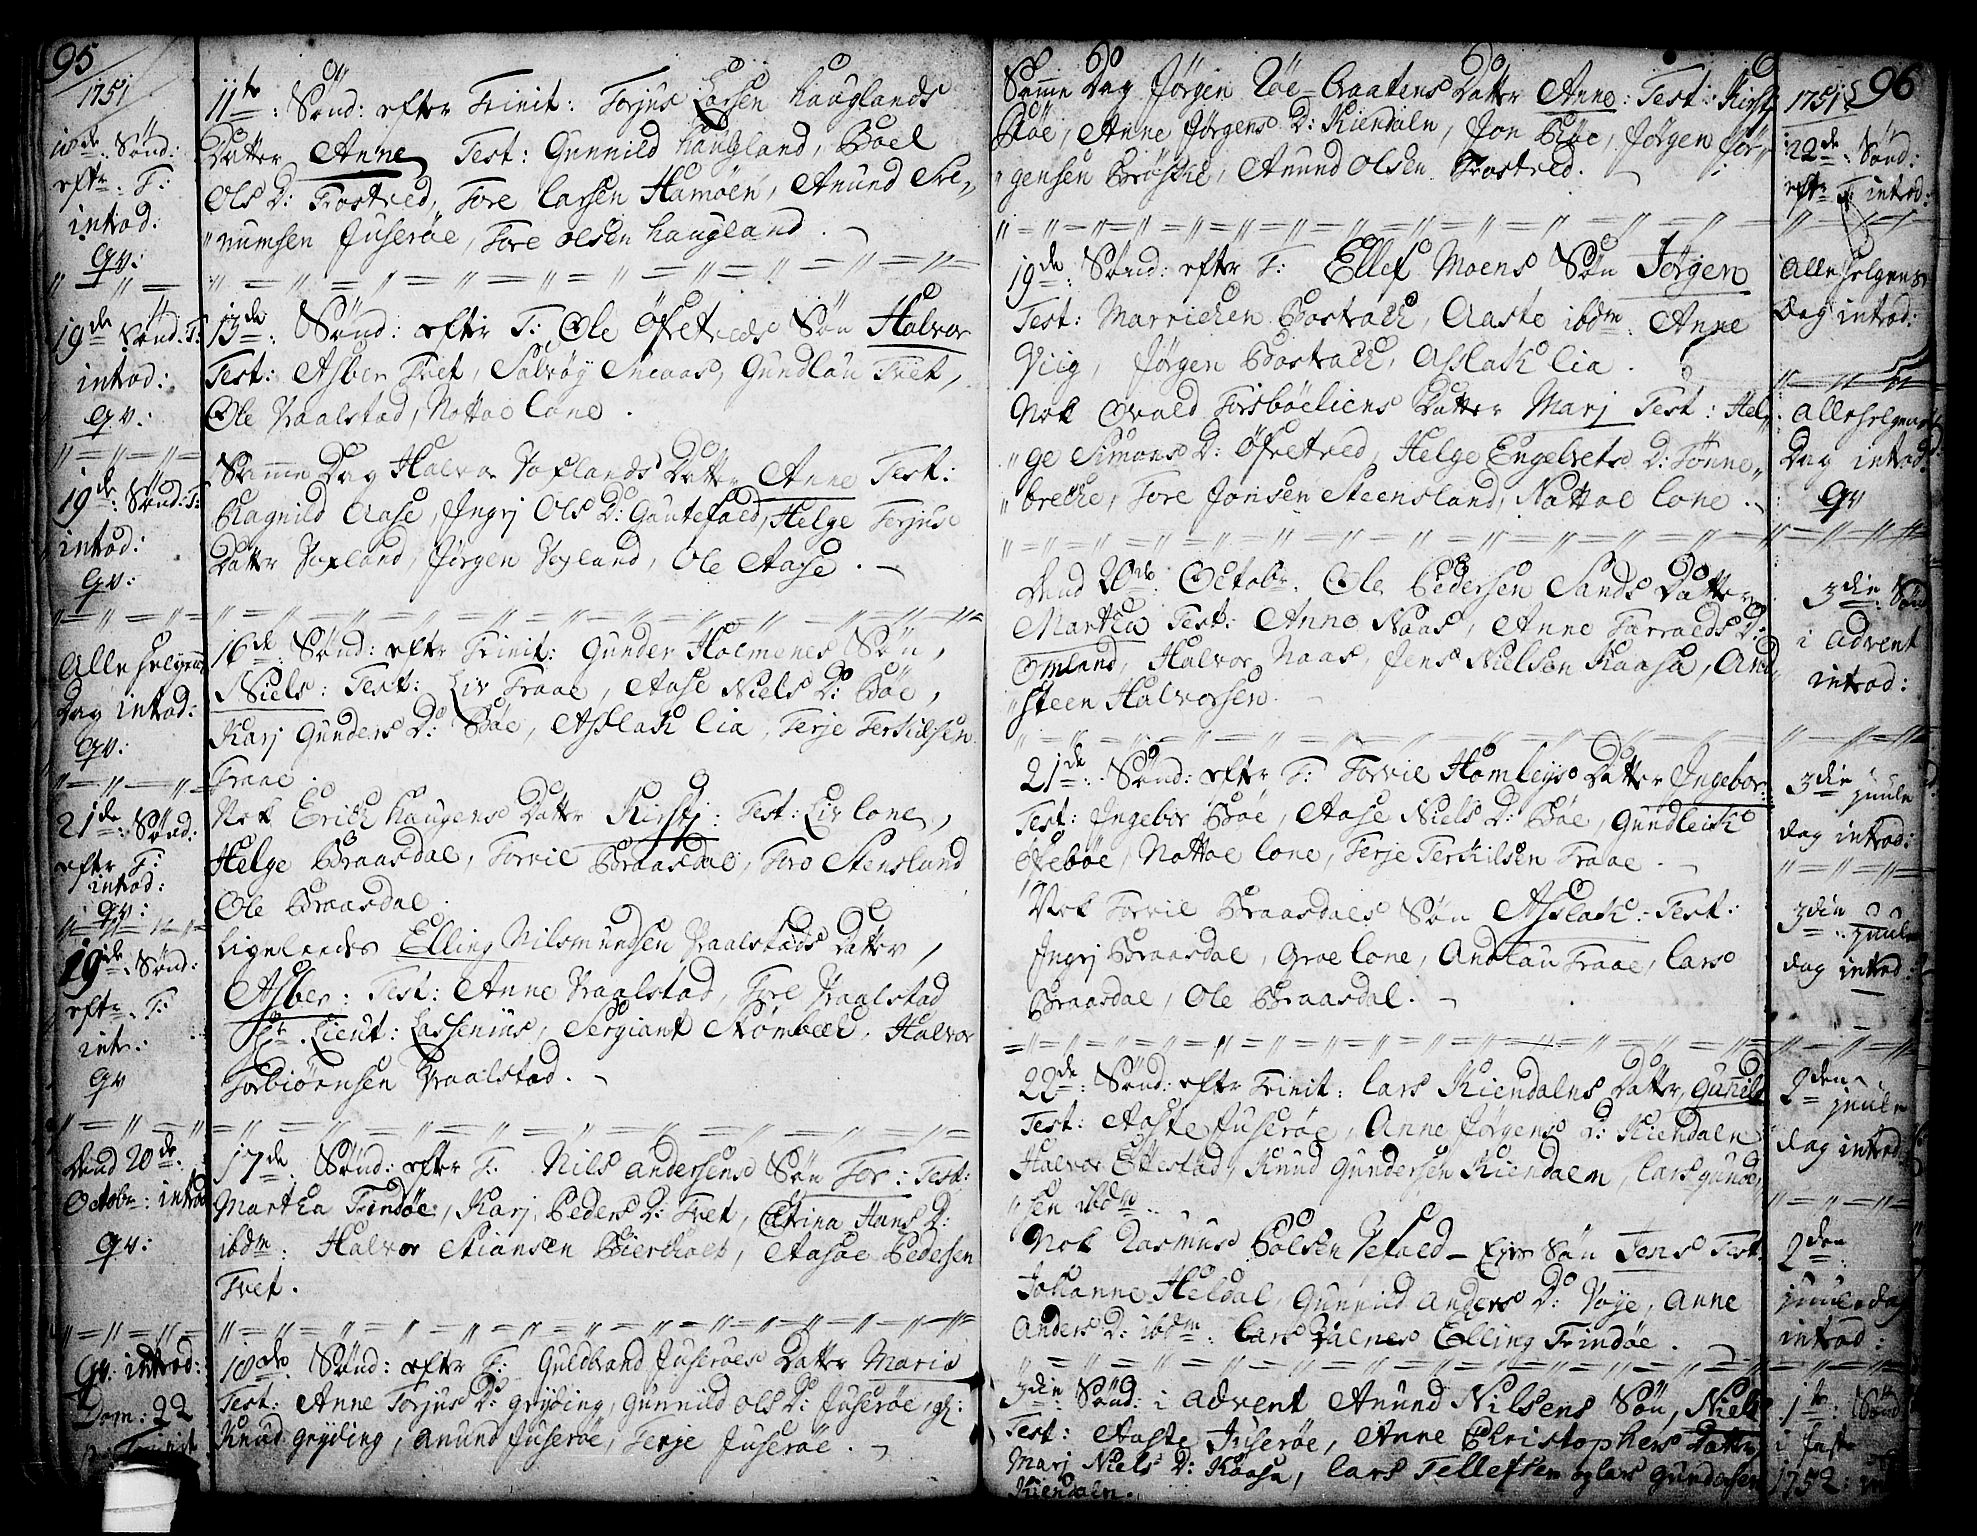 95
1751
10de Sønd:
eft: T:
introd:
qv:
19de Sønd: T:
introd:
qv:
19de Sønd: T:
introd:
qv:
Alle helgens
Dag introd:
qv:
21de Sønd:
efter T:
introd:
qv:
19de Sønd:
eft: T:
int:
qv
dend 20de
Octobr: introd
qv:
qv: introd:
Dom: 22
p: Trinit
11te Sønd: efter Trinit: Torjus Larsen hauglands
Datter Anne Test: Gunnild haugland, Boel
Ols D: Trostved, Tore Larsen Hamoen, Anund Tre-
numsen Juserøe, Tore Olsen haugland.
13de Sønd: efter T: Ole Øfretveds Søn Halvor
Test: Asber Tvet, Salvøy Sneaas, Gundlau Tvet,
Ole Vraalstad, Nottoe Lone.
Samme Dag Halvor Voxlands Datter Anne Test:
Ragnild Aase, Ingrj Ols D: Gautefald, Helge Terjus
Datter Voxland, Jørgen Voxland, Ole Aase.
16de Sønd: efter Trinit: Gunder Holmenes Søn,
Niels: Test: Liv Traae, Aase Niels D: Bøe,
Karj Gunders D: Bøe, Asslak Lia, Terje Terkilsen
Traae.
Nok Erich haugens Datter Kirstj: Test: Liv Lone,
Helge Braasdal, Torvil Braasdal, Tore Stensland
Ole Braasdal.
Ligeledes Elling Nilsmundsen Vraalstads Datter,
Asber: Test: Anne Vraalstad, Tore Vraalstad
Hr. Lieut: Lassenius, Sergiant Strømbeck, Halvor
Torbiørnsen Vraalstad.
17de Sønd: efter T: Nils Andersens Søn Tor: Test:
Martha Trindøe, Karj Peders D: Tvet, Catrina Hans D:
ibdm: Halvor Stiansen Bierkholt, Aasoe Pedersen
Tvet.
18de Sønd: efter T: Guldbrand Juserøes Datter Maria
Test: Anne Torjus D: Gryding, Gunnild Ols D: Juserøe,
Knud Gryding, Anund Juserøe, Terje Juserøe.
Samme Dag Jørgen Røe-Braatens Datter Anne: Test: Kirstj
Bøe, Anne Jørgens D: Kiendaln, Jon Bøe, Jørgen Jør-
gensen Brøske, Anund Olsen Trostved.
19de Sønd: efter T: Ellef Moens Søn Jørgen
Test: Marrichen Bostrach, Aaste ibdm. Anne
Viig, Jørgen Bostrach, Asslak Lia.
Nok Ovald Forsbøeliens Datter Marj Test: Hel-
ge Simons D: Øfretved, Helge Engebrets D: Tønne-
breche, Tore Jonsen Steensland, Nottoe Lone.
dend 20de Octobr. Ole Pedersen Sands Datter
Martha Test: Anne Naas, Anne Tarralds D:
Omland, Halvor Naas, Jens Nielsen Kaasa, And-
steen Halvorsen.
21de Sønd: efter T: Torvil Homleys Datter Ingebor:
Test: Ingebor Bøe, Aase Niels D: Bøe, Gundleik
Nebøe, Nottoe Lone, Terje Terkilsen Traae.
Nok Torvil Braasdals Søn Asslak: Test:
Ingrj Braasdal, Groe Lone, Andlau Traae, Lars
Braasdal, Ole Braasdal.
22de Sønd: efter Trinit: Lars Kiendalns Datter, Gunild
Test: Aaste Juserøe, Anne Jørgens D: Kiendaln
Halvor Ettestad, Knud Gundersen Kiendaln, Lars Gunder-
sen ibdm.
Nok Rasmus Polsen Vefald - Søn Jens Test:
Johanne Heldal, Gunnild Anders D: Voje, Anne
Anders D: ibdm: Lars Elling Trindøe.
3die Sønd: i Advent Anund Nilsens Søn, Niels
Test: Aaste Juserøe, Anne Christophers Datter,
Marj Niels D: Kaasa, Lars Tellefsen og Lars Gundersen
Kiendaln.
96
1751
22de Sønd:
eft: T: introd:
Alle helgens
Dag introd:
Alle helgens
Dag introd:
qv
3die Sønd
i Advent
introd:
3die juule
dag introd:
3die juule
dag introd:
2den juule
dag introd
2den
juuledag
introd:
1ste Sønd
i Faste
1752: